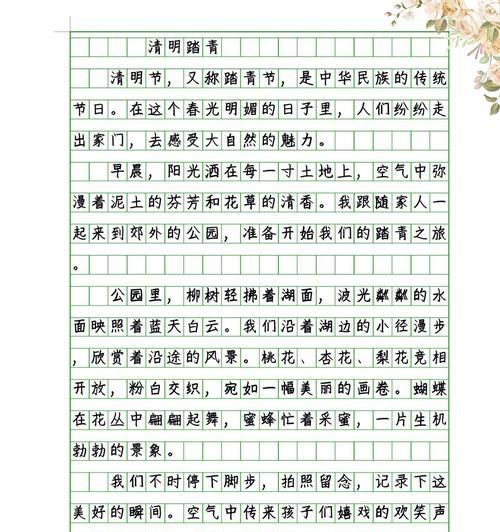 清明踏青
清明节，又称踏青节，是中华民族的传统
节日。在这个春光明媚的日子里，人们纷纷走
出家门，去感受大自然的魅力。
早晨，阳光洒在每一寸土地上，空气中弥
漫着泥土的芬芳和花草的清香。我跟随家人一
起来到郊外的公园，准备开始我们的踏青之旅
。
公园里，柳树轻拂着湖面，波光粼粼的水
面映照着蓝天白云。我们沿着湖边的小径漫步
，欣赏着沿途的风景。桃花、杏花、梨花竞相
开放，粉白交织，宛如一幅美丽的画卷。蝴蝶
在花丛中翩翩起舞，蜜蜂忙着采蜜，一片生机
勃勃的景象。
我们不时停下脚步，拍照留念，记录下这
美好的瞬间。空气中传来孩子们嬉戏的欢笑声